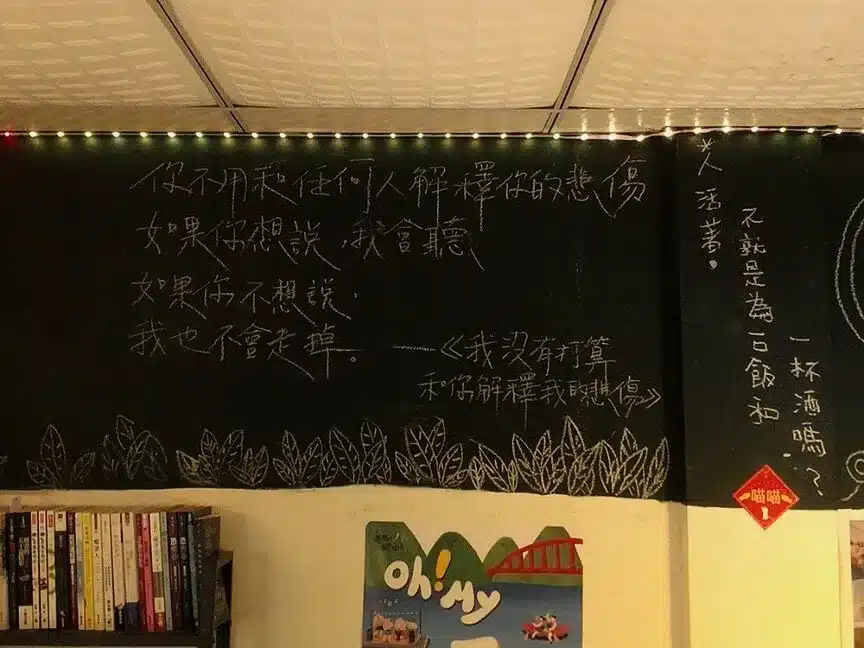 你不用和任何人解釋你的悲傷
如果你想說,我會聽
如果你不想說,
我也不會走掉。 —《我沒有打算
和你解釋我的悲傷》
人活著。
不就是為一口飯和
一杯酒嗎?
喵喵
Oh! My